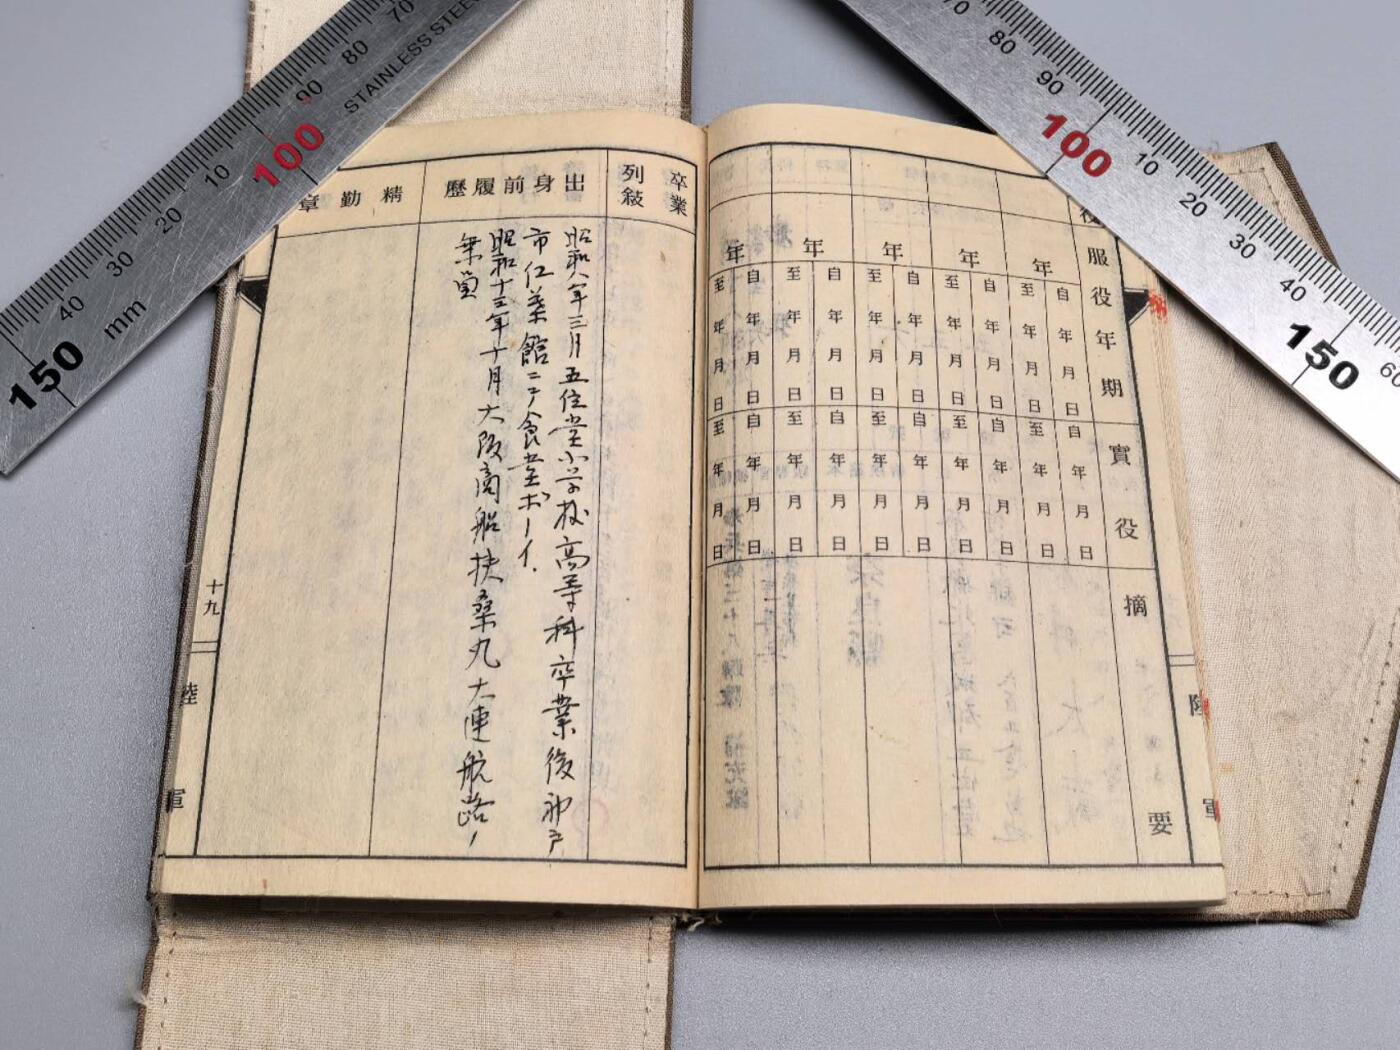 70
80
90
100
10
20
30
40
mm
150
STAINLESS STEEL
70
80
90
100
10
20
30
40
150
60
服役年期
實役
摘要
年 年 年 年 年
自年月日
至年月日
自年月日
至年月日
自年月日
至年月日
自年月日
至年月日
自年月日
至年月日
自年月日
至年月日
自年月日
至年月日
自年月日
至年月日
自年月日
至年月日
自年月日
至年月日
陸軍
卒業
列敍
出身前履歷
昭和八年三月五位堂小学校高等科卒業後神戸
市仁菜館ニテ食堂ボーイ.
昭和十三年十月大阪商船扶桑丸大連航路ノ
乗員
精勤章
十九
陸軍